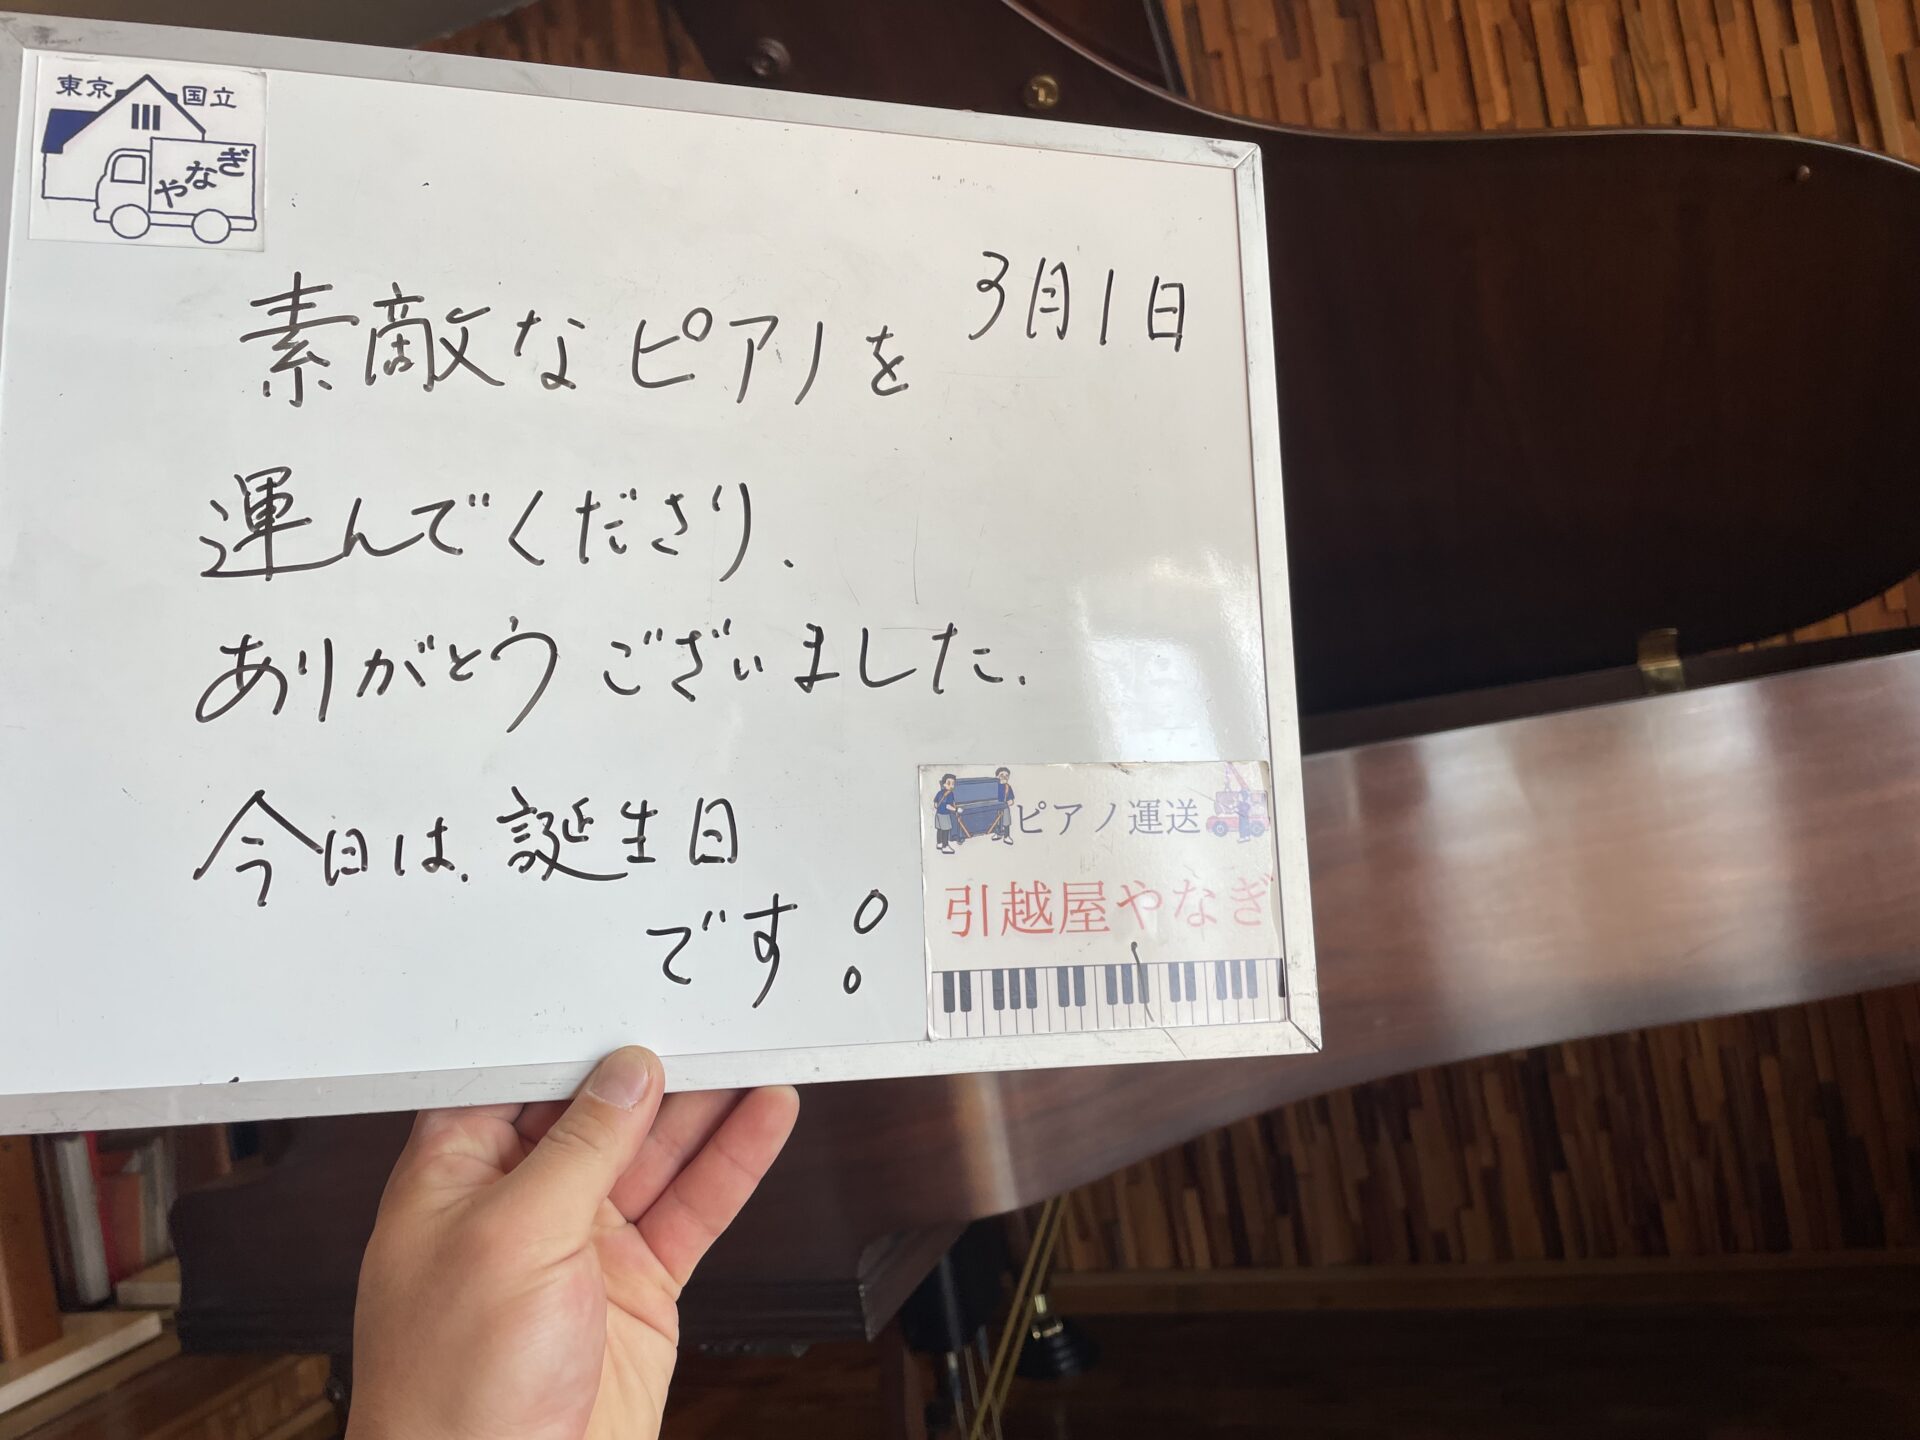 東京 国立
やなぎ
3月1日
素敵なピアノを
運んでくださり、
ありがとうございました。
今日は、誕生日
です!
ピアノ運送
引越屋やなぎ